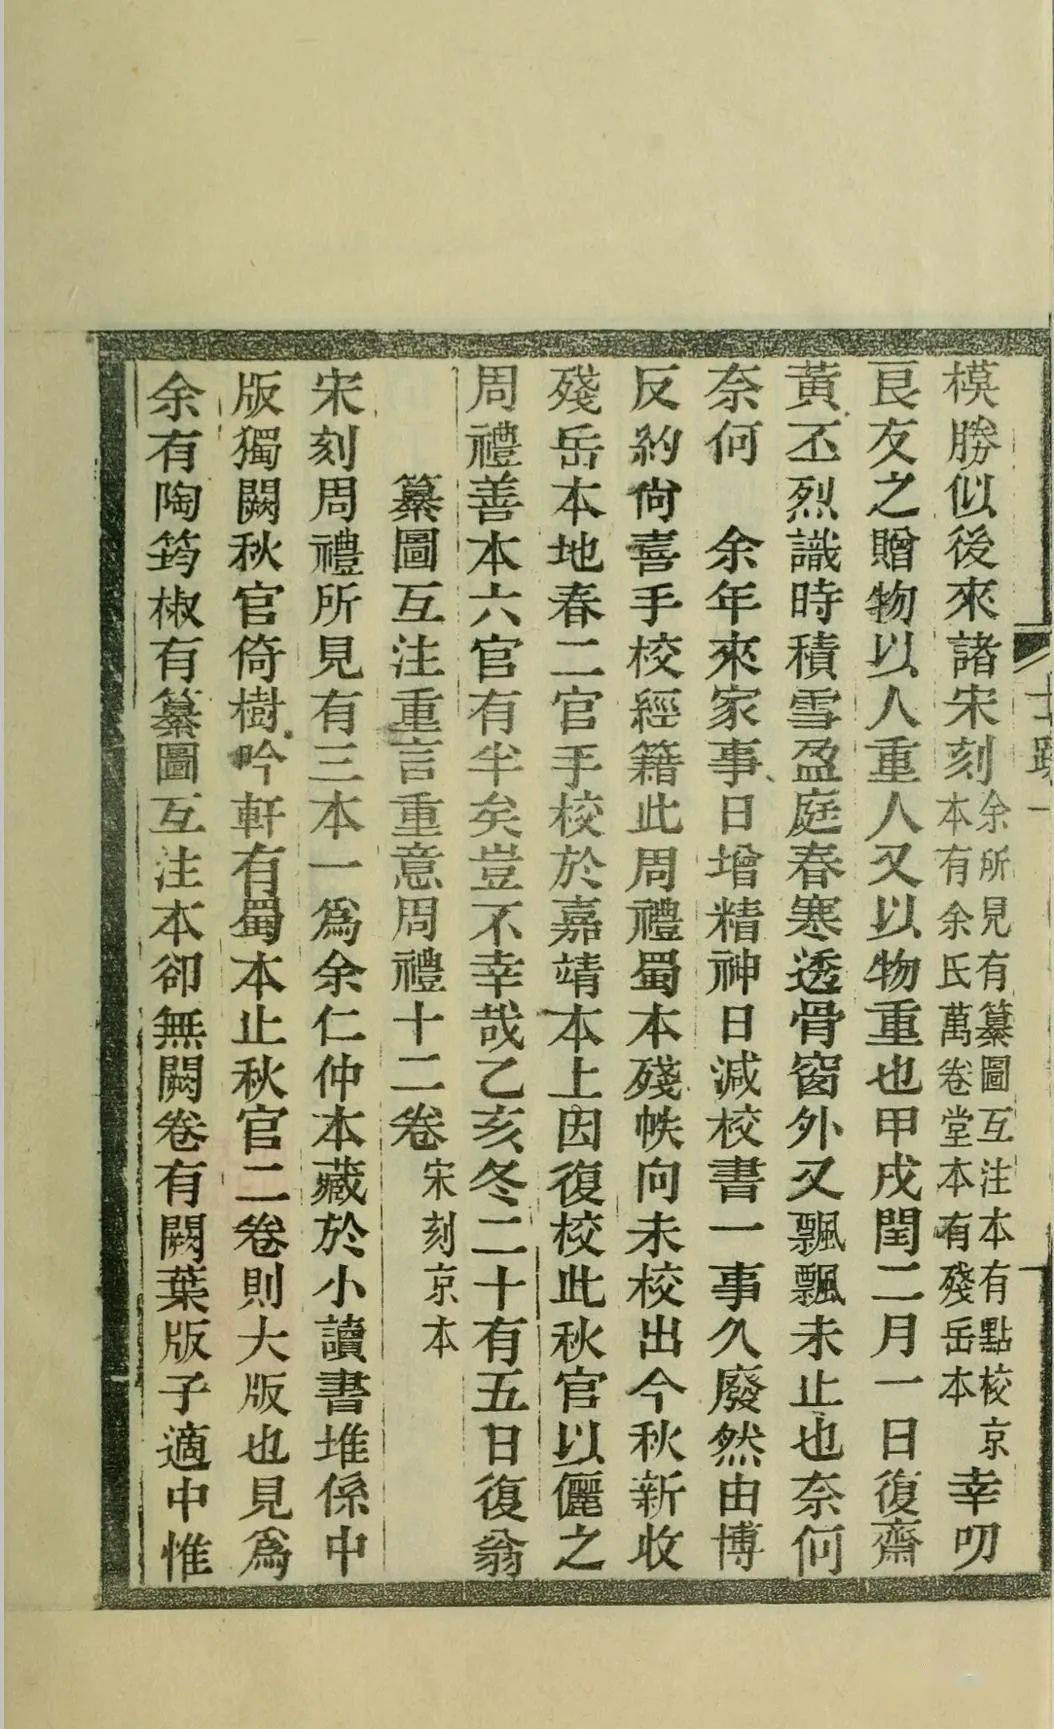 士
一
模勝似後來諸宋刻余所見有纂圖互注本有點校京本有余氏萬卷堂本有殘岳本幸叨
良友之贈物以人重人又以物重也甲戌閏二月一日復齋
黃丕烈識時積雪盈庭春寒透骨窗外又飄飄未止也奈何
奈何 余年來家事日增精神日減校書一事久廢然由博
反約尙喜手校經籍此周禮蜀本殘帙向未校出今秋新收
殘岳本地春二官手校於嘉靖本上因復校此秋官以儷之
周禮善本六官有半矣豈不幸哉乙亥冬二十有五日復翁
纂圖互注重言重意周禮十二卷宋刻京本
宋刻周禮所見有三本一爲余仁仲本藏於小讀書堆係中
版獨闕秋官倚樹吟軒有蜀本止秋官二卷則大版也見爲
余有陶筠椒有纂圖互注本卻無闕卷有闕葉版子適中惟